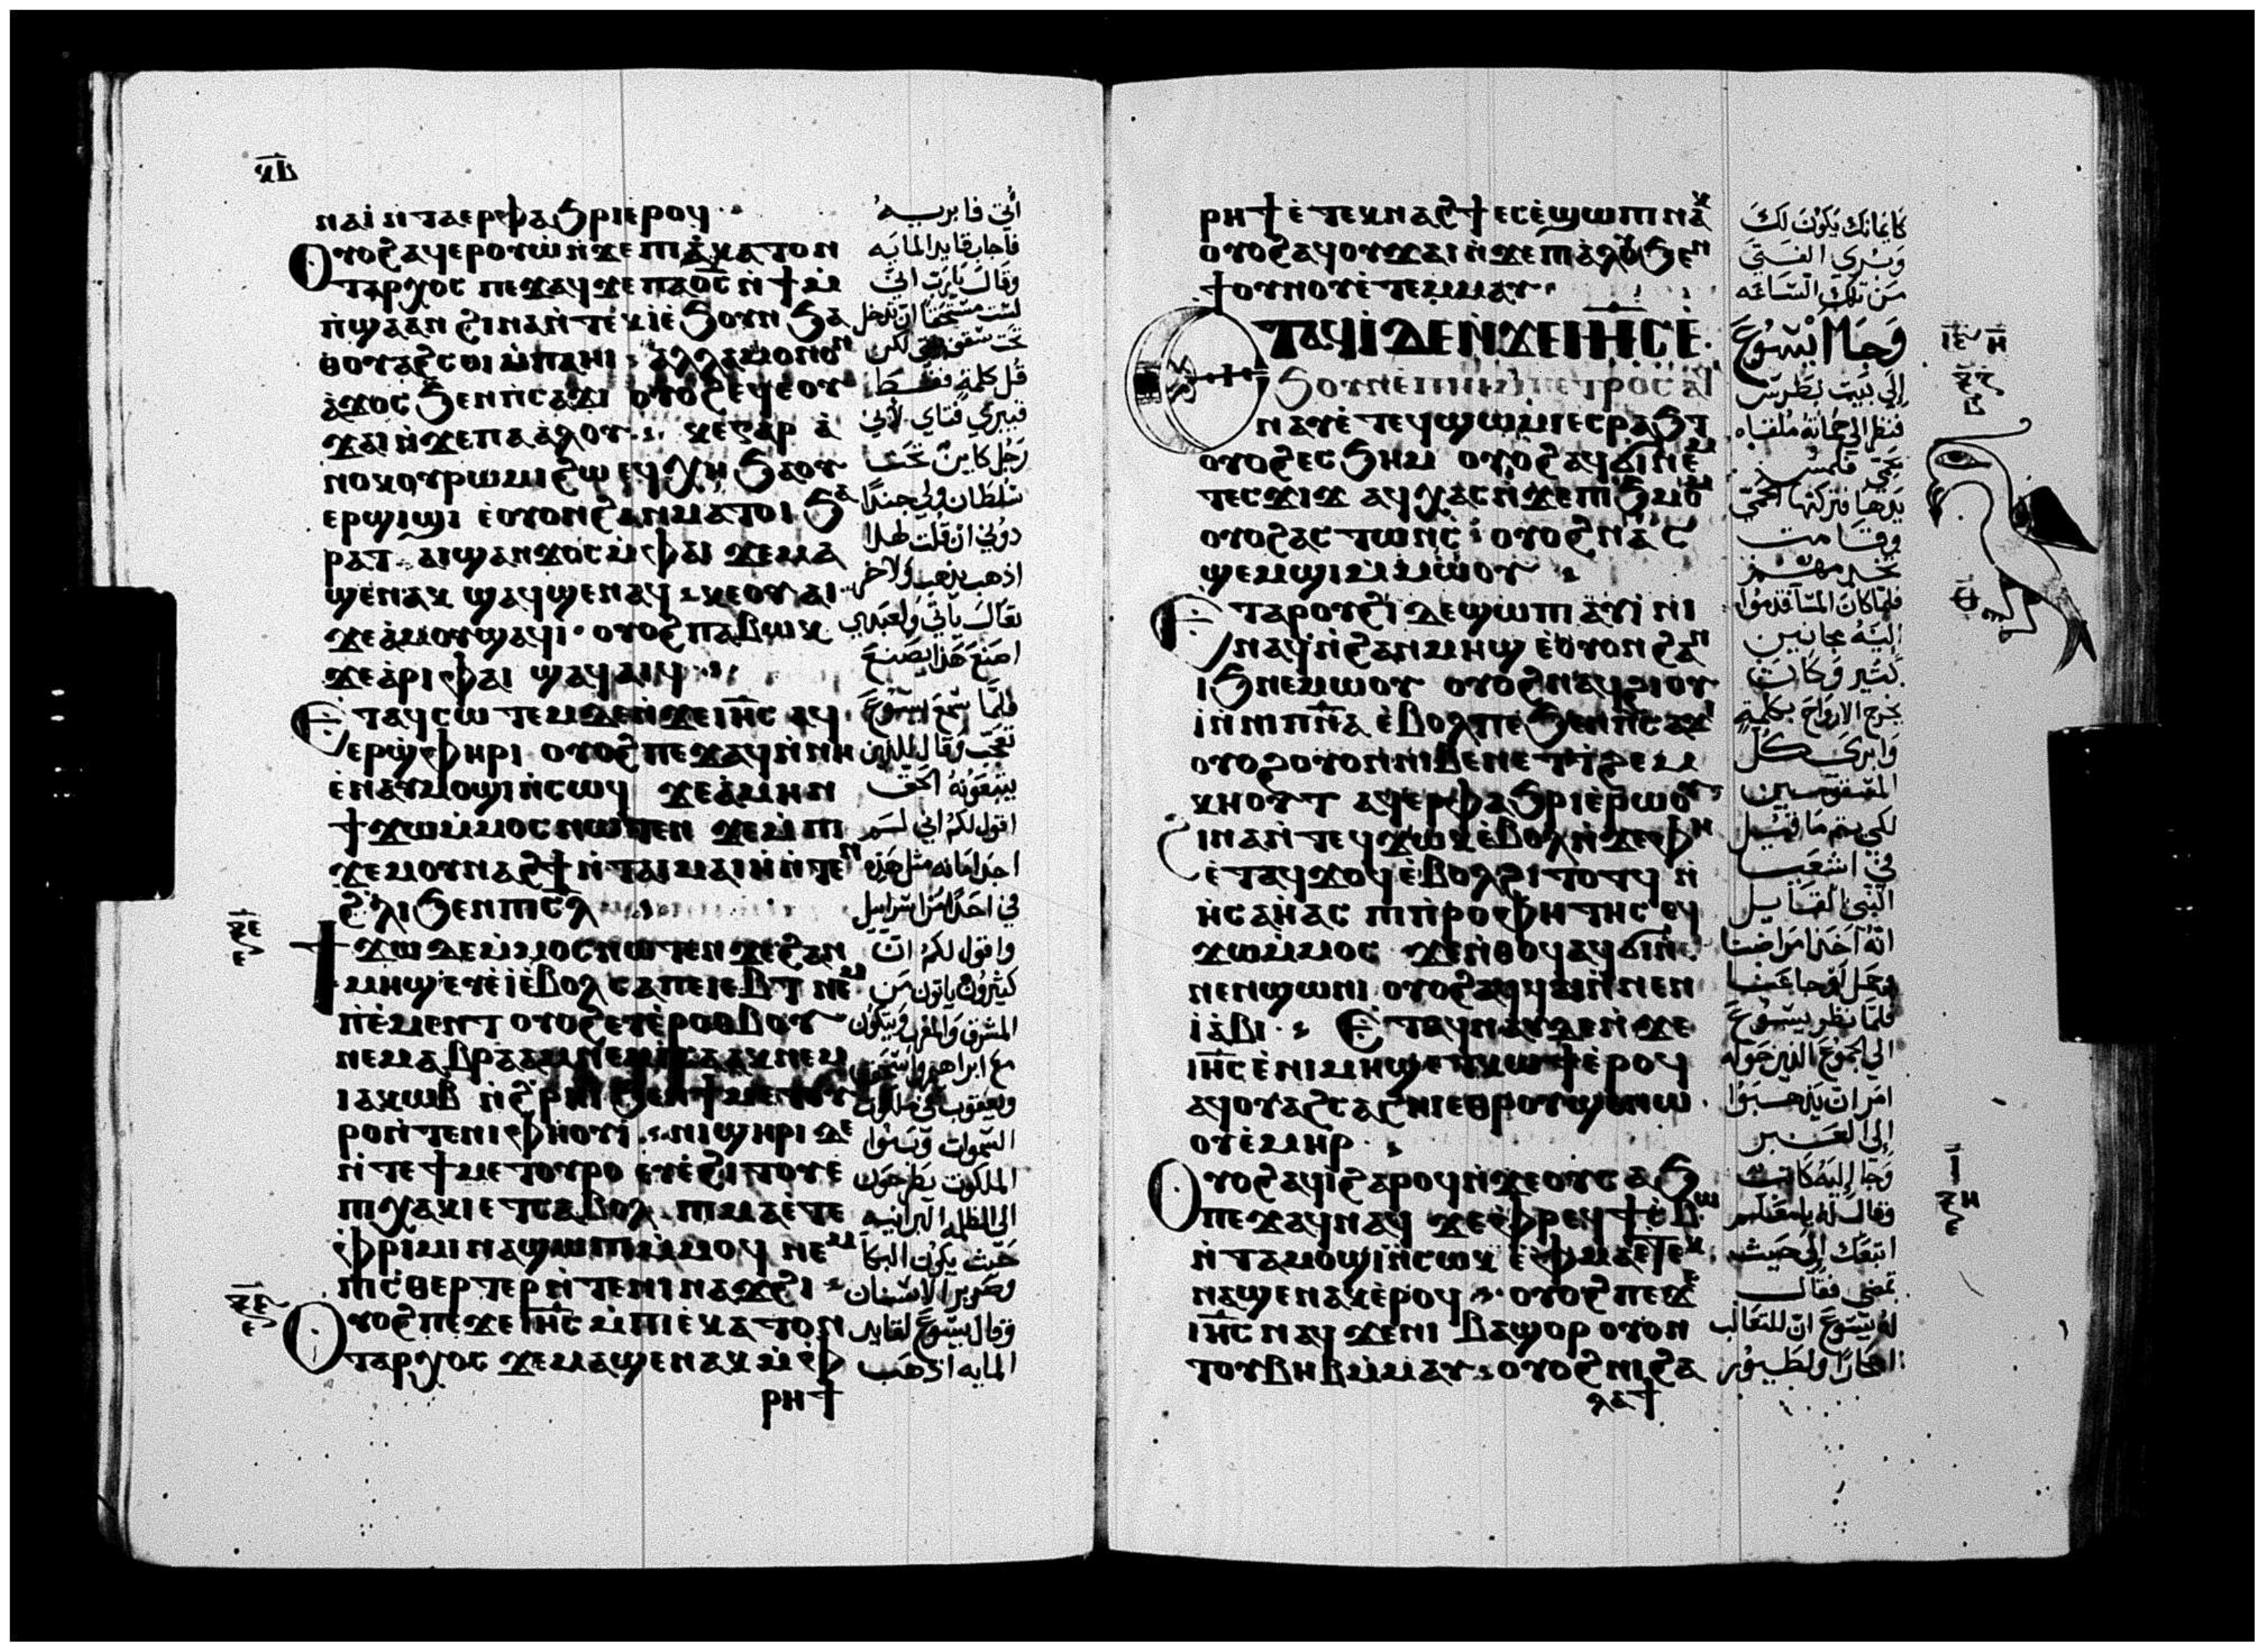 ⲕⲃ
ⲛⲁⲓ ⲛⲧⲁⲉⲣⲫⲁϧⲣⲓ ⲉⲣⲟϥ
ⲟⲩⲟϩ ⲁϥⲉⲣⲟⲩⲱ ⲛϫⲉ ⲡⲓⲉⲕⲁⲧⲟⲛ
ⲧⲁⲣⲭⲟⲥ ⲡⲉϫⲁϥ ϫⲉ ⲡⲁⲟ̅ⲥ̅ ⲛϯⲙ
ⲡϣⲁ ⲁⲛ ϩⲓⲛⲁ ⲛⲧⲉⲕⲓ ⲉϧⲟⲩⲛ ϧⲁ
ⲑⲟⲩⲁϩⲥⲟⲓ ⲙⲡⲁⲏⲓ ⲁⲗⲗⲁ ⲙⲟⲛⲟⲛ
ⲁϫⲟⲥ ϧⲉⲛ ⲡⲥⲁϫⲓ ⲟⲩⲟϩ ⲉϥⲉⲟⲩ
ϫⲁⲓ ⲛϫⲉ ⲡⲁⲁⲗⲟⲩ ⲕⲉ ⲅⲁⲣ ⲁ
ⲛⲟⲕ ⲟⲩⲣⲱⲙⲓ ϩⲱ ⲉϥⲭⲏ ϧⲁ ⲟⲩ
ⲉⲣϣⲓϣⲓ ⲉⲟⲩⲟⲛ ϩⲁⲛⲙⲁⲧⲟⲓ ϧⲁ
ⲣⲁⲧ ⲁⲓϣⲁⲛϫⲟⲥ ⲙⲫⲁⲓ ϫⲉ ⲙⲁ
ϣⲉⲛⲁⲕ ϣⲁϥϣⲉⲛⲁϥ ⲕⲉⲟⲩⲁⲓ
ϫⲉ ⲁⲙⲟⲩ ϣⲁϥⲓ ⲟⲩⲟϩ ⲡⲁⲃⲱⲕ
ϫⲉ ⲁⲣⲓ ⲫⲁⲓ ϣⲁϥⲁⲓϥ
ⲉⲧⲁϥⲥⲱⲧⲉⲙ ⲇⲉ ⲛϫⲉ ⲓⲏ̅ⲥ̅ ⲁϥ
ⲉⲣϣⲫⲏⲣⲓ ⲟⲩⲟϩ ⲡⲉϫⲁϥ ⲛⲛⲏ
ⲉⲛⲁⲩⲙⲟϣⲓ ⲛⲥⲱϥ ϫⲉ ⲁⲙⲏⲛ
ϯϫⲱ ⲙⲙⲟⲥ ⲛⲱⲧⲉⲛ ϫⲉ ⲙⲡⲓ
ϫⲉⲙ ⲟⲩⲛⲁϩϯ ⲛⲧⲁⲓⲙⲁⲓⲏ ⲛⲧⲉⲛ
ϩⲗⲓ ϧⲉⲛ ⲡⲓⲥ̅ⲗ̅
ϯϫⲱ ⲇⲉ ⲙⲙⲟⲥ ⲛⲱⲧⲉⲛ ϫⲉ ϩⲁⲛ
ⲙⲏϣ ⲉⲩⲉⲓ ⲉⲃⲟⲗ ⲥⲁ ⲡⲉⲓⲉⲃⲧ ⲛⲉⲙ
ⲡⲉⲙⲉⲛⲧ ⲟⲩⲟϩ ⲉⲩⲉⲣⲟⲑⲃⲟⲩ
ⲛⲉⲙ ⲁⲃⲣⲁⲁⲙ ⲛⲉⲙ ⲓⲥⲁⲁⲕ ⲛⲉⲙ
ⲓⲁⲕⲱⲃ ⲛϩⲣⲏⲓ ϧⲉⲛ ϯⲙⲉⲧⲟⲩ
ⲣⲟ ⲛⲧⲉ ⲛⲓⲫⲏⲟⲩⲓ ⲛⲓϣⲏⲣⲓ ⲇⲉ
ⲛⲧⲉ ϯⲙⲉⲧⲟⲩⲣⲟ ⲉⲩⲉϩⲓⲧⲟⲩ ⲉ
ⲡⲓⲭⲁⲕⲓ ⲉⲧⲥⲁⲃⲟⲗ ⲡⲓⲙⲁ ⲉⲧⲉ
ⲫⲣⲓⲙⲓ ⲛⲁϣⲱⲡⲓ ⲙⲙⲟϥ ⲛⲉⲙ
ⲡⲓⲥⲑⲉⲣⲧⲉⲣ ⲛⲧⲉ ⲛⲓⲛⲁϫϩⲓ
ⲟⲩⲟϩ ⲡⲉϫⲉ ⲓⲏ̅ⲥ̅ ⲙⲡⲓⲉⲕⲁⲧⲟⲛ
ⲧⲁⲣⲭⲟⲥ ϫⲉ ⲙⲁϣⲉⲛⲁⲕ ⲙⲫ
ⲣⲏϯ
أتي فابريه
فاجاب قايد المايه
وقال يارب اني
لست مستحقا ان تدخل
تحت سقف بيتي لكن
قل كلمة فقط
فيبري فتاي لأني
رجل كاين تحت
سلطان ولي جندا
دوني ان قلت لهذا
اذهب يذهب ولاخر
تعال ياتي ولعبدي
اصنع هذا يصنع
فلما سمع يسوع
تعجب وقال للذين
يتبعونه الحق
اقول لكم اني لم
اجد امانه مثل هذه
في احد اسراييل
واقول لكم ان
كثيرون ياتون من
المشرق والمغرب ويتكون
مع ابراهيم واسحق
ويعقوب في ملكوت
السموات وبنوا
الملكوت يطرحون
الى الظلمه البرانيه
حيث يكون البكا
وصرير الاسنان
وقال يسوع لقايد
المايه اذهب
ⲣⲏϯ ⲉⲧⲉⲕⲛⲁϩϯ ⲉⲥⲉϣⲱⲡⲓ ⲛⲁⲕ
ⲟⲩⲟϩ ⲁϥⲟⲩϫⲁⲓ ⲛϫⲉ ⲡⲓⲁⲗⲟⲩ ϧⲉⲛ
ϯⲟⲩⲛⲟⲩ ⲉⲧⲉⲙⲙⲁⲩ
ⲉⲧⲁϥⲓ ⲇⲉ ⲛϫⲉ ⲓⲏ̅ⲥ̅ ⲉ
ϧⲟⲩⲛ ⲉⲡⲏⲓ ⲙⲡⲉⲧⲣⲟⲥ ⲁϥ
ⲛⲁⲩ ⲉⲧⲉϥϣⲱⲙⲓ ⲉⲥⲣⲁϧⲧ
ⲟⲩⲟϩ ⲉⲥϧⲏⲙ ⲟⲩⲟϩ ⲁϥϭⲓ ⲛⲉⲙ
ⲧⲉⲥϫⲓϫ ⲁϥⲭⲁⲥ ⲛϫⲉ ⲡⲓϧⲙⲟⲙ
ⲟⲩⲟϩ ⲁⲥⲧⲱⲛⲥ ⲟⲩⲟϩ ⲛⲁⲥ
ϣⲉⲙϣⲓ ⲙⲙⲱⲟⲩ
ⲉⲧⲁ ⲣⲟⲩϩⲓ ⲇⲉ ϣⲱⲡⲓ ⲁⲩⲓⲛⲓ
ⲛⲁϥ ⲛϩⲁⲛⲙⲏϣ ⲉⲟⲩⲟⲛ ϩⲁⲛ
ⲓϧ ⲛⲉⲙⲱⲟⲩ ⲟⲩⲟϩ ⲛⲁϥϩⲓⲟⲩ
ⲓ ⲛⲛⲓⲡⲛ̅ⲁ̅ ⲉⲃⲟⲗ ⲡⲉ ϧⲉⲛ ⲡⲥⲁϫⲓ
ⲟⲩⲟϩ ⲟⲩⲟⲛ ⲛⲓⲃⲉⲛ ⲉⲧⲧϩⲉⲙ
ⲕⲏⲟⲩⲧ ⲁϥⲉⲣⲫⲁϧⲣⲓ ⲉⲣⲱⲟⲩ
ϩⲓⲛⲁ ⲛⲧⲉϥϫⲱⲕ ⲉⲃⲟⲗ ⲛϫⲉ ⲫⲏ
ⲉⲧⲁϥϫⲟϥ ⲉⲃⲟⲗ ϩⲓⲧⲟⲧϥ ⲛ
ⲏⲥⲁⲏⲁⲥ ⲡⲓⲡⲣⲟⲫⲏⲧⲏⲥ ⲉϥ
ϫⲱ ⲙⲙⲟⲥ ϫⲉ ⲛⲑⲟϥ ⲁϥϭⲓ ⲛ
ⲛⲉⲛϣⲱⲛⲓ ⲟⲩⲟϩ ⲁϥϥⲁⲓ ⲛⲛⲉⲛ
ⲓⲁⲃⲓ ⲉⲧⲁϥⲛⲁⲩ ⲇⲉ ⲛϫⲉ
ⲓⲏ̅ⲥ̅ ⲉⲛⲓⲙⲏϣ ⲉⲧⲕⲱϯ ⲉⲣⲟϥ
ⲁϥⲟⲩⲁϩⲥⲁϩⲛⲓ ⲉⲑⲣⲟⲩϣⲉⲛⲱ
ⲟⲩ ⲉⲙⲏⲣ
ⲟⲩⲟϩ ⲁϥⲓ ϩⲁⲣⲟϥ ⲛϫⲉ ⲟⲩⲥⲁϧ
ⲡⲉϫⲁϥ ⲛⲁϥ ϫⲉ ⲫⲣⲉϥϯⲥⲃⲱ
ⲛⲧⲁⲙⲟϣⲓ ⲛⲥⲱⲕ ⲉⲫⲙⲁ ⲉⲧⲉⲕ
ⲛⲁϣⲉⲛⲁⲕ ⲉⲣⲟϥ ⲟⲩⲟϩ ⲡⲉϫⲉ
ⲓⲏ̅ⲥ̅ ⲛⲁϥ ϫⲉ ⲛⲓⲃⲁϣⲟⲣ ⲟⲩⲟⲛ
ⲧⲟⲩ ⲃⲏⲃ ⲙⲙⲁⲩ ⲟⲩⲟϩ ⲛⲓϩⲁ
ⲗⲁϯ
كايمانك يكون لك
وبري الفتي
من تلك الساعه
وجا يسوع
إلى بيت بطرس
فنظر الى حماته ملقاه
تحمي فلمس
يدها فتركتها الحمي
وقامت
تخدمهم
فلما كان المسا قدموا
إليه مجانين
كثير وكان
يخرج الارواح بكلمة
وابرى كل
المسقومين
لكي يتم ما قيل
في اشعيا
النبي القايل
انه اخذ امراضنا
وحمل اوجاعنا
فلما نظر يسوع
الى الجموع الذين حوله
امر ان يذهبوا
إلى العبر
وجا إليه كاتب
وقال له يا معلم
اتبعك إلى حيث
تمضي فقال
له يسوع ان للثعالب
اجحارا ولطيور